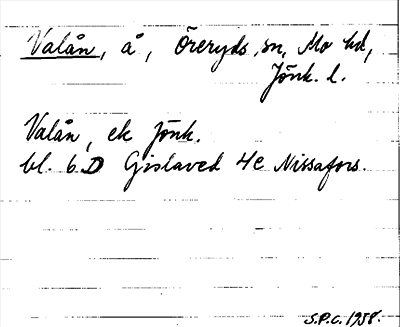 Valån, å, Öreryds sn, Mo hd,
Jönk. l.
Valån, ek Jönk.
bl. 6D Gislaved 4e Nissafors.
S.P.C. 1958.